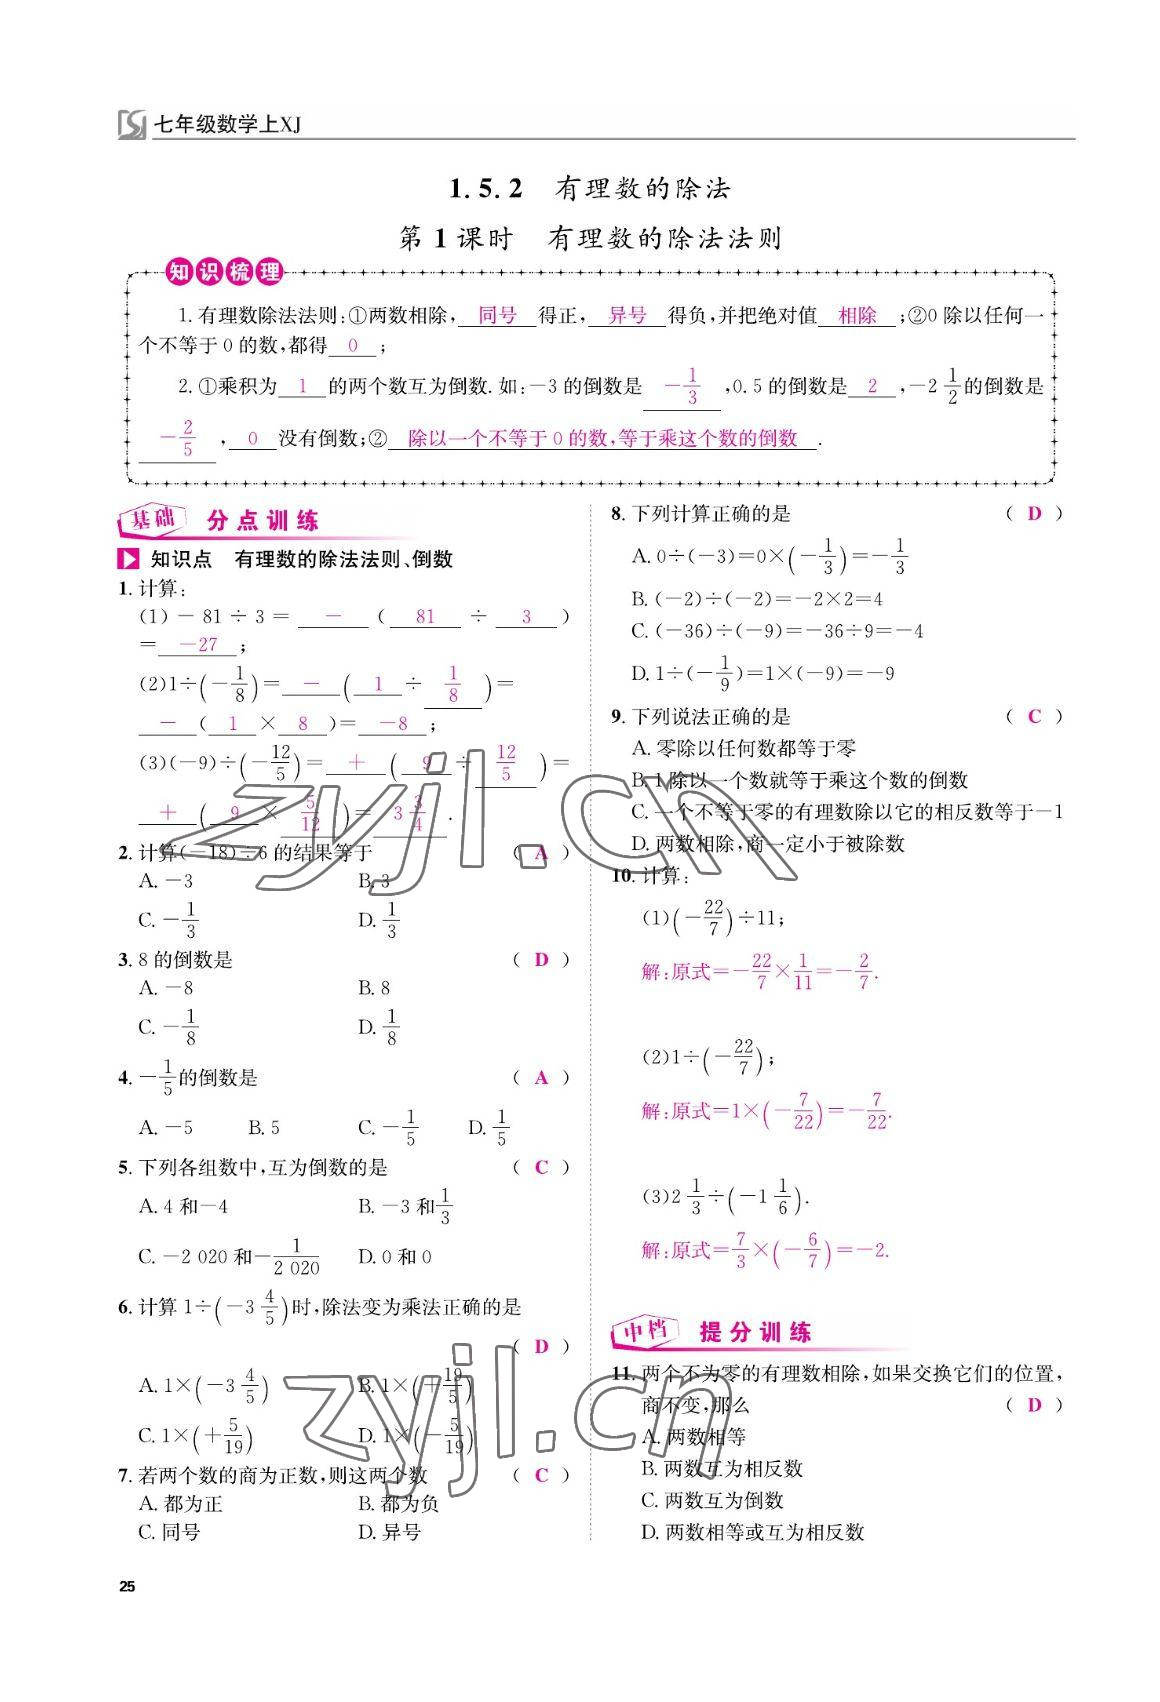 七年级数学上XJ
1.5.2 有理数的除法
第1课时 有理数的除法法则
知识梳理
1. 有理数除法法则:①两数相除, 同号 得正, 异号 得负,并把绝对值 相除 ;②0 除以任何一
个不等于 0 的数,都得 0 ;
2. ①乘积为 1 的两个数互为倒数. 如:-3 的倒数是 -1/3 ,0.5 的倒数是 2 ,-2 1/2 的倒数是
-2/5 , 0 没有倒数;② 除以一个不等于 0 的数,等于乘这个数的倒数 .
基础 分点训练
知识点 有理数的除法法则、倒数
1. 计算:
(1)-81÷3= - ( 81 ÷ 3 )
= -27 ;
(2)1÷(-1/8)= - ( 1 ÷ 1/8 )=
- ( 1 × 8 )= -8 ;
(3)(-9)÷(-12/5)= + ( 9 ÷ 12/5 )=
+ ( 9 × 5/12 )= 3 3/4 .
2. 计算(-18)÷6 的结果等于 ( A )
A. -3 B. 3
C. -1/3 D. 1/3
3. 8 的倒数是 ( D )
A. -8 B. 8
C. -1/8 D. 1/8
4. -1/5 的倒数是 ( A )
A. -5 B. 5 C. -1/5 D. 1/5
5. 下列各组数中,互为倒数的是 ( C )
A. 4 和-4 B. -3 和1/3
C. -2 020 和-1/2 020 D. 0 和 0
6. 计算 1÷(-3 4/5)时,除法变为乘法正确的是
( D )
A. 1×(-3 4/5) B. 1×(+19/5)
C. 1×(+5/19) D. 1×(-5/19)
7. 若两个数的商为正数,则这两个数 ( C )
A. 都为正 B. 都为负
C. 同号 D. 异号
8. 下列计算正确的是 ( D )
A. 0÷(-3)=0×(-1/3)=-1/3
B. (-2)÷(-2)=-2×2=4
C. (-36)÷(-9)=-36÷9=-4
D. 1÷(-1/9)=1×(-9)=-9
9. 下列说法正确的是 ( C )
A. 零除以任何数都等于零
B. 1 除以一个数就等于乘这个数的倒数
C. 一个不等于零的有理数除以它的相反数等于-1
D. 两数相除,商一定小于被除数
10. 计算:
(1)(-22/7)÷11;
解:原式=-22/7×1/11=-2/7.
(2)1÷(-22/7);
解:原式=1×(-7/22)=-7/22.
(3)2 1/3÷(-1 1/6).
解:原式=7/3×(-6/7)=-2.
中档 提分训练
11. 两个不为零的有理数相除,如果交换它们的位置,
商不变,那么 ( D )
A. 两数相等
B. 两数互为相反数
C. 两数互为倒数
D. 两数相等或互为相反数
25
zyjl.cn
zyjl.cn